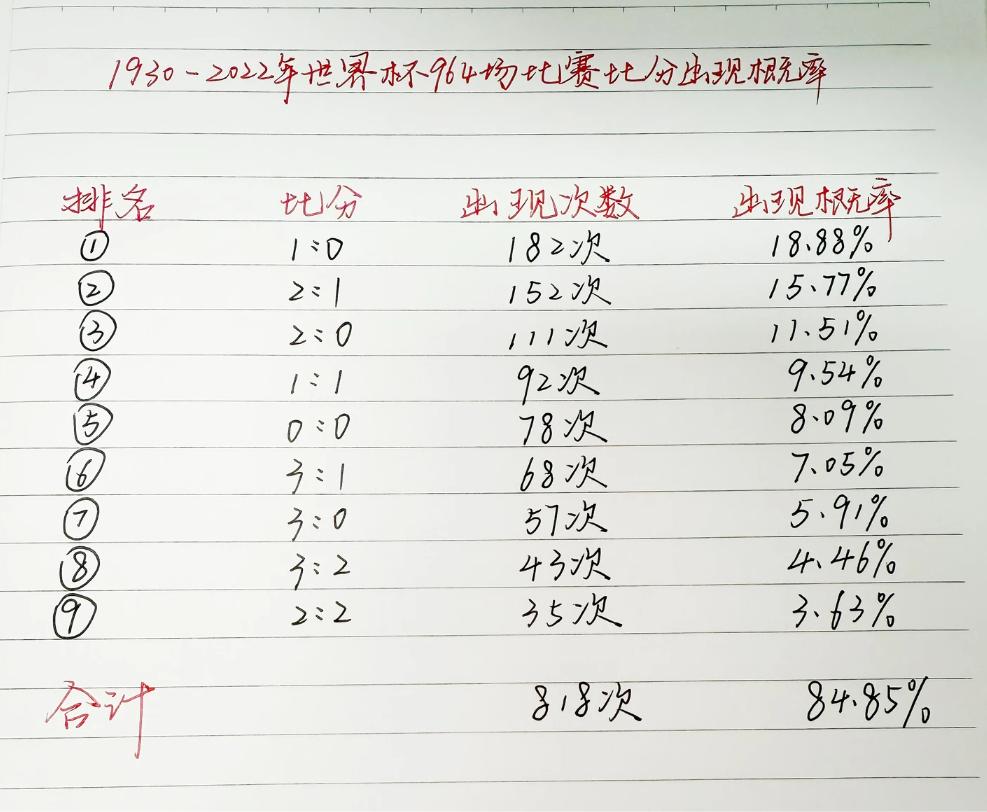 1930-2022年世界杯964场比赛比分出现概率
排名 比分 出现次数 出现概率
① 1:0 182次 18.88%
② 2:1 152次 15.77%
③ 2:0 111次 11.51%
④ 1:1 92次 9.54%
⑤ 0:0 78次 8.09%
⑥ 3:1 68次 7.05%
⑦ 3:0 57次 5.91%
⑧ 3:2 43次 4.46%
⑨ 2:2 35次 3.63%
合计 818次 84.85%